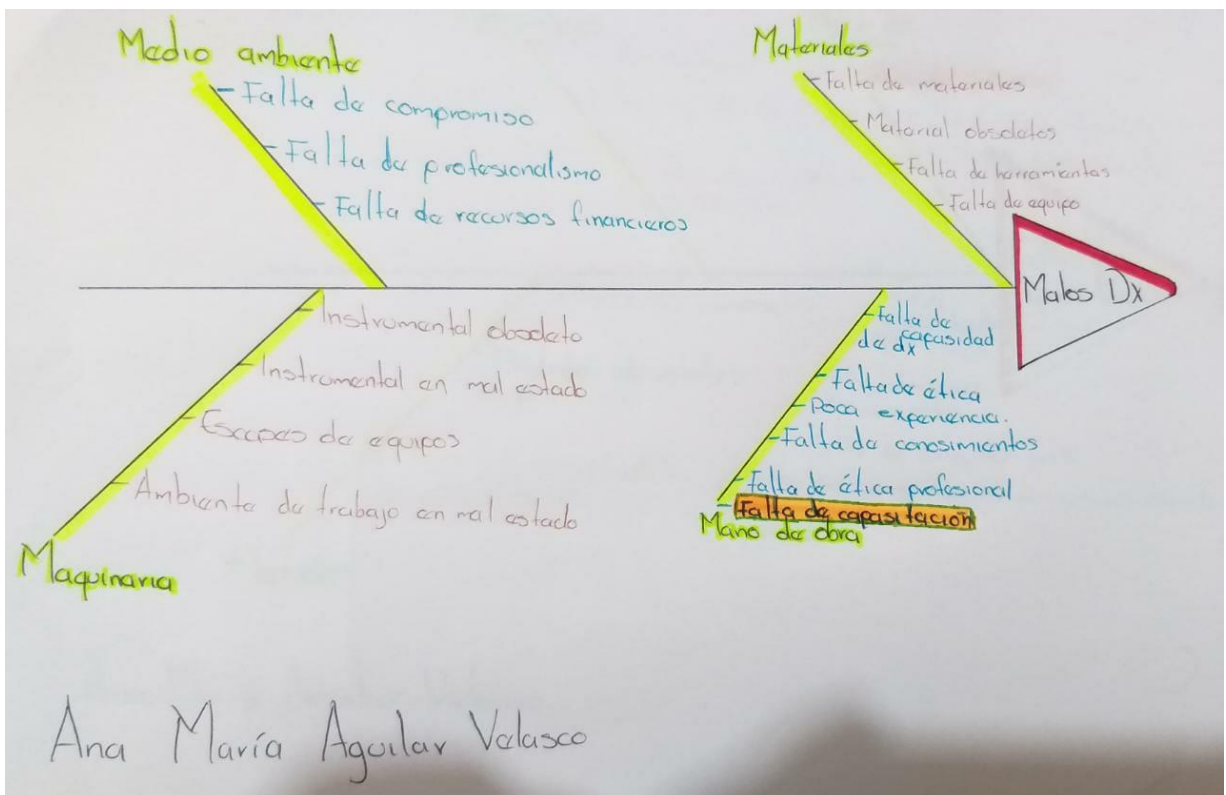 Medio ambiente
- Falta de compromiso
- Falta de profesionalismo
- Falta de recursos financieros
Materiales
- Falta de materiales
- Material obsoletos
- Falta de herramientas
- Falta de equipo
Malos Dx
- Instrumental obsoleto
- Instrumental en mal estado
- Escapes de equipos
- Ambiente de trabajo en mal estado
Maquinaria
- Falta de
capasidad
de dx
- Falta de ética
- Poca experiencia.
- Falta de conosimientos
- Falta de ética profesional
- Falta de capasitación
Mano de obra
Ana María Aguilar Velasco